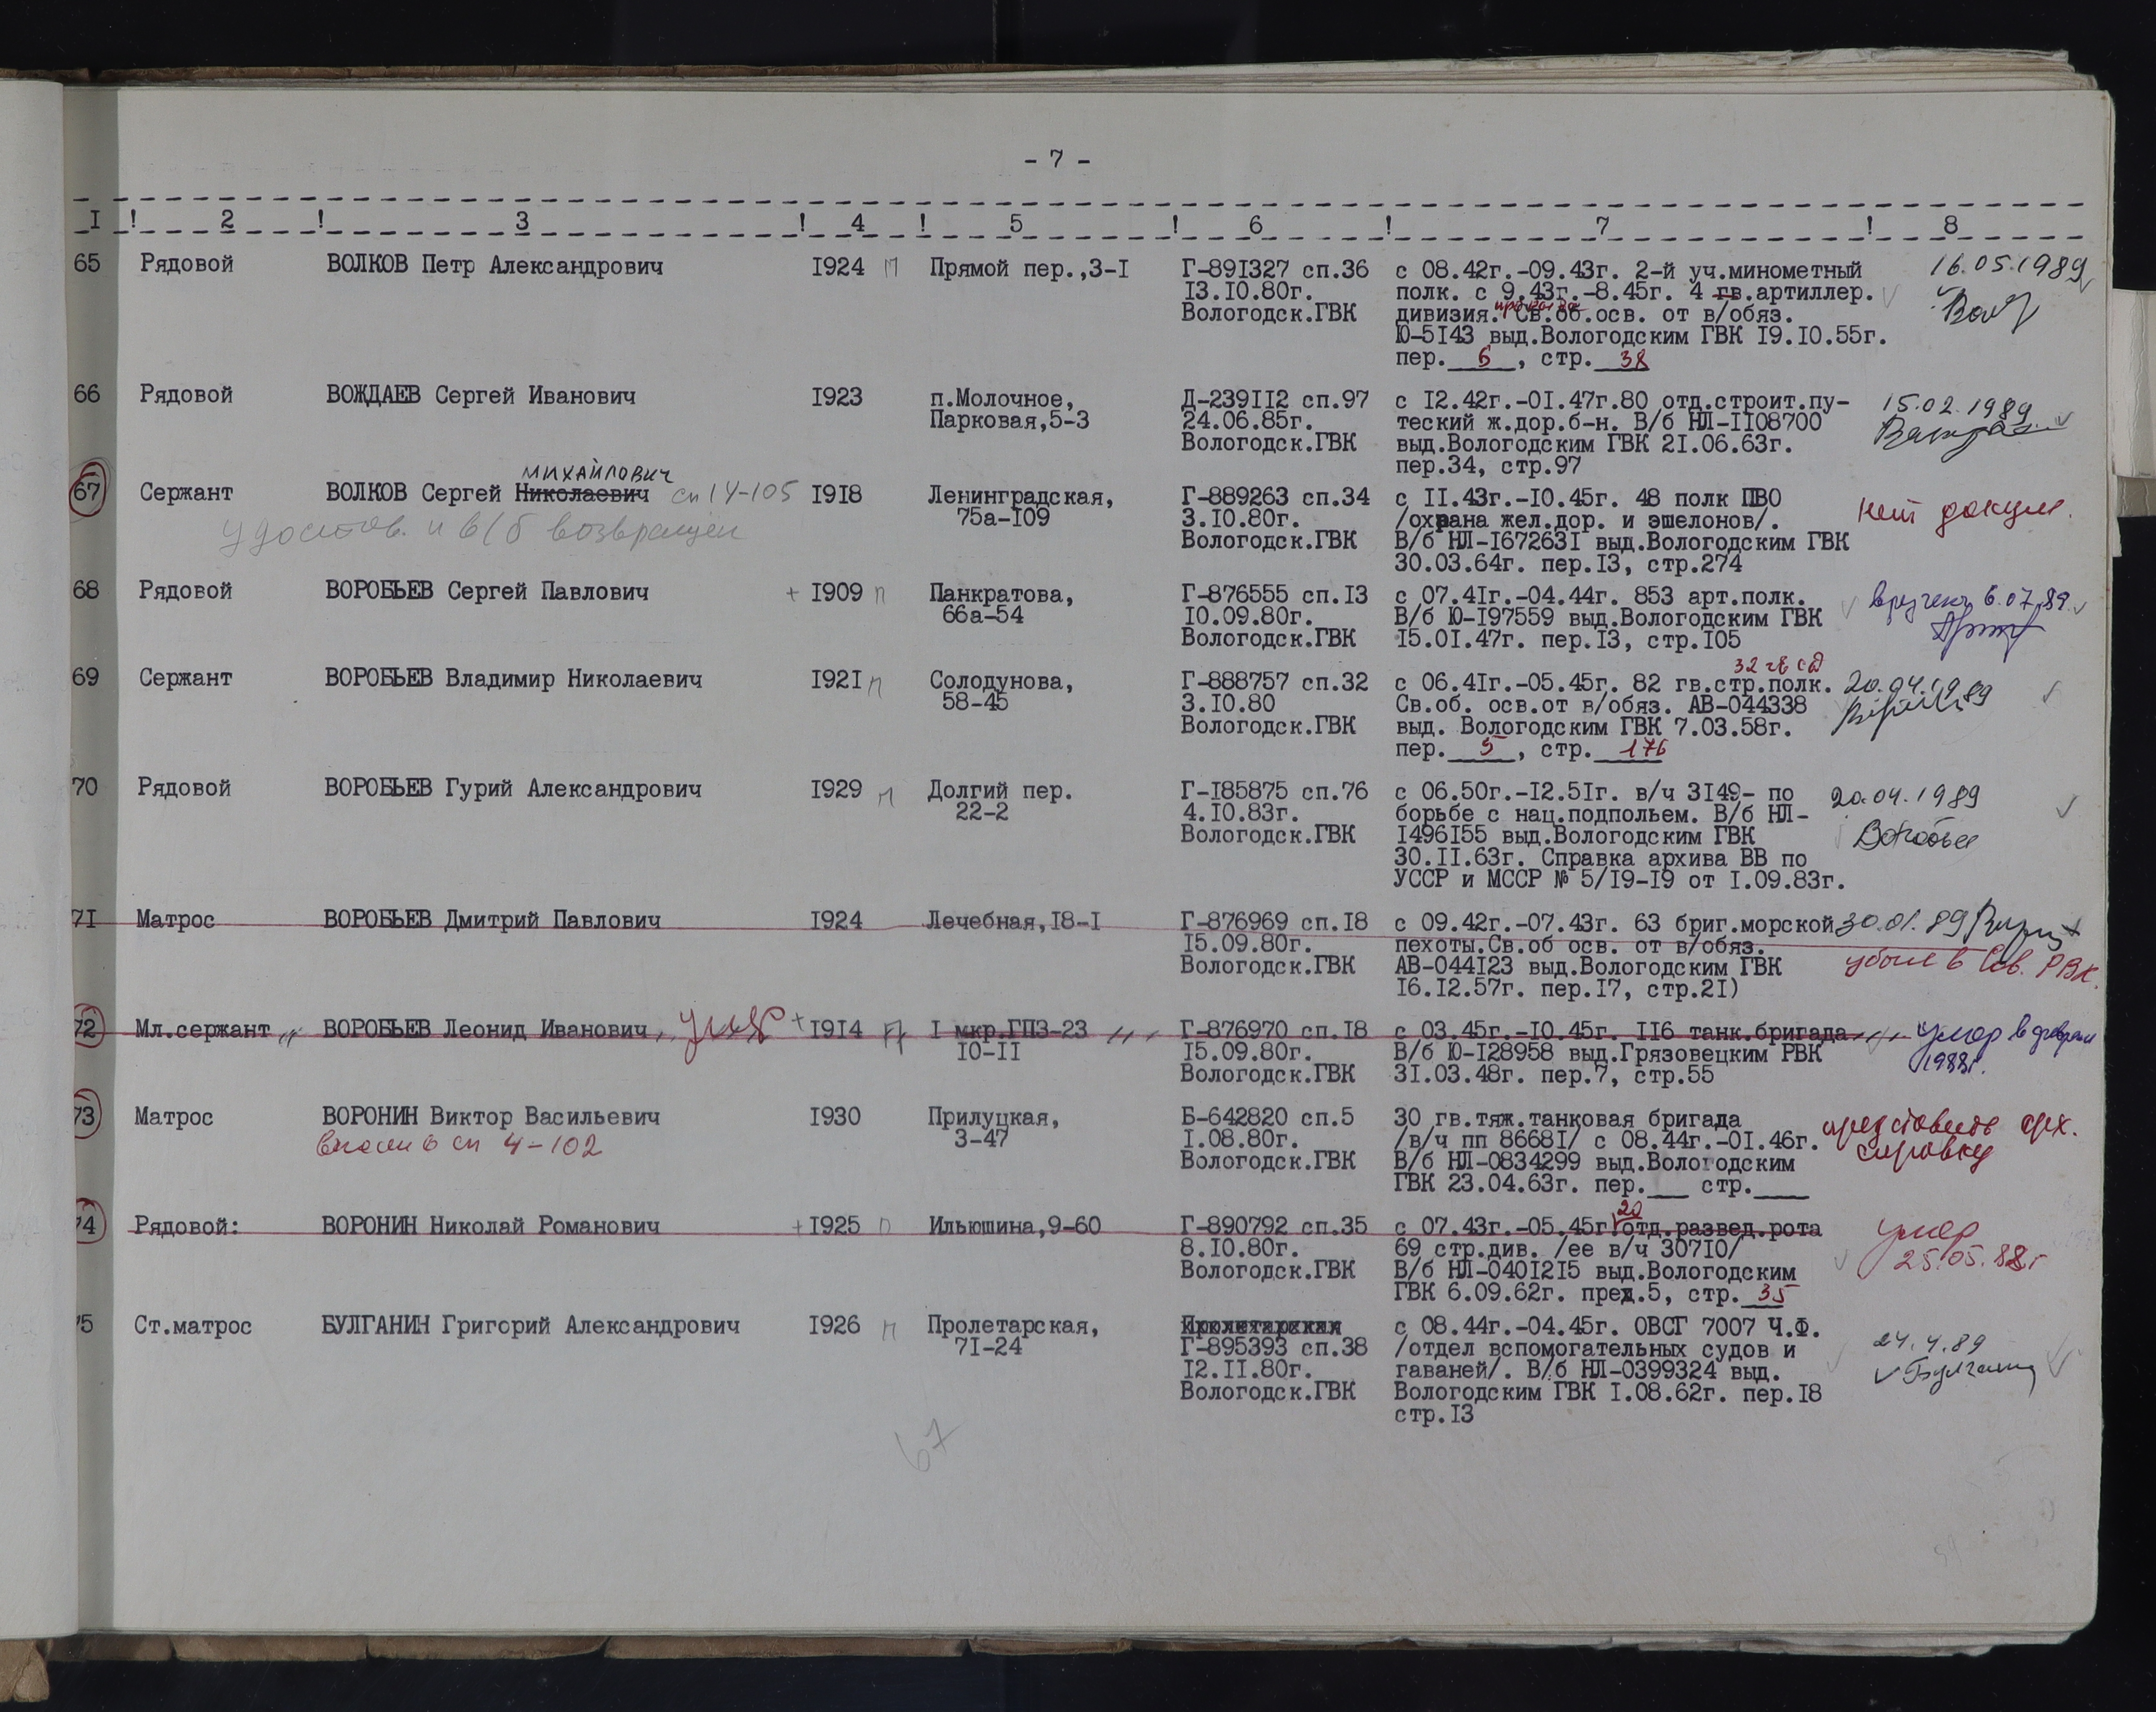 - 7 -
I ! 2 ! 3 ! 4 ! 5 ! 6 ! 7 ! 8
65 Рядовой ВОЛКОВ Петр Александрович 1924 п Прямой пер.,3-I Г-891327 сп.36 с 08.42г.-09.43г. 2-й уч.минометный 16.05.1989
13.10.80г. полк. с 9.43г.-8.45г. 4 гв.артиллер.
Вологодск.ГВК дивизия. Св.об.осв. от в/обяз.
Ю-5143 выд.Вологодским ГВК 19.10.55г.
пер. 6, стр. 38
66 Рядовой ВОЖДАЕВ Сергей Иванович 1923 п.Молочное, Д-239112 сп.97 с 12.42г.-01.47г.80 отд.строит.пу- 15.02.1989
Парковая,5-3 24.06.85г. теский ж.дор.б-н. В/б НЛ-1108700
Вологодск.ГВК выд.Вологодским ГВК 21.06.63г.
пер.34, стр.97
михайлович
67 Сержант ВОЛКОВ Сергей Николаевич сп 14-105 1918 Ленинградская, Г-889263 сп.34 с 11.43г.-10.45г. 48 полк ПВО нет докум.
удостов. и в/б возвращен 75а-109 3.10.80г. /охрана жел.дор. и эшелонов/.
Вологодск.ГВК В/б НЛ-1672631 выд.Вологодским ГВК
30.03.64г. пер.13, стр.274
68 Рядовой ВОРОБЬЕВ Сергей Павлович + 1909 п Панкратова, Г-876555 сп.13 с 07.41г.-04.44г. 853 арт.полк. вручен 6.07.89
66а-54 10.09.80г. В/б Ю-197559 выд.Вологодским ГВК
Вологодск.ГВК 15.01.47г. пер.13, стр.105
32 гв сд
69 Сержант ВОРОБЬЕВ Владимир Николаевич 1921 п Солодунова, Г-888757 сп.32 с 06.41г.-05.45г. 82 гв.стр.полк. 20.04.1989
58-45 3.10.80 Св.об. осв.от в/обяз. АВ-044338
Вологодск.ГВК выд. Вологодским ГВК 7.03.58г.
пер. 5, стр. 176
70 Рядовой ВОРОБЬЕВ Гурий Александрович 1929 п Долгий пер. Г-185875 сп.76 с 06.50г.-12.51г. в/ч 3149- по 20.04.1989
22-2 4.10.83г. борьбе с нац.подпольем. В/б НЛ-
Вологодск.ГВК 1496155 выд.Вологодским ГВК
30.11.63г. Справка архива ВВ по
УССР и МССР № 5/19-19 от 1.09.83г.
71 Матрос ВОРОБЬЕВ Дмитрий Павлович 1924 Лечебная,18-I Г-876969 сп.18 с 09.42г.-07.43г. 63 бриг.морской 30.01.89
15.09.80г. пехоты.Св.об осв. от в/обяз. убыл в Сов. РВК.
Вологодск.ГВК АВ-044123 выд.Вологодским ГВК
16.12.57г. пер.17, стр.21)
72 Мл.сержант ВОРОБЬЕВ Леонид Иванович умер + 1914 п I мкр.ГПЗ-23 Г-876970 сп.18 с 03.45г.-10.45г. 116 танк.бригада умер в феврале
10-11 15.09.80г. В/б Ю-128958 выд.Грязовецким РВК 1988г.
Вологодск.ГВК 31.03.48г. пер.7, стр.55
73 Матрос ВОРОНИН Виктор Васильевич 1930 Прилуцкая, Б-642820 сп.5 30 гв.тяж.танковая бригада представить арх.
внесен в сп 4-102 3-47 1.08.80г. /в/ч пп 86681/ с 08.44г.-01.46г. справку
Вологодск.ГВК В/б НЛ-0834299 выд.Вологодским
ГВК 23.04.63г. пер.___ стр.____
20
74 Рядовой: ВОРОНИН Николай Романович + 1925 п Ильюшина,9-60 Г-890792 сп.35 с 07.43г.-05.45г отд.развед.рота умер
8.10.80г. 69 стр.див. /ее в/ч 30710/ 25.05.88г
Вологодск.ГВК В/б НЛ-0401215 выд.Вологодским
ГВК 6.09.62г. пред.5, стр. 35
75 Ст.матрос БУЛГАНИН Григорий Александрович 1926 п Пролетарская, Пролетарская с 08.44г.-04.45г. ОВСГ 7007 Ч.Ф. 24.4.89
71-24 Г-895393 сп.38 /отдел вспомогательных судов и Булганин
12.11.80г. гаваней/. В/б НЛ-0399324 выд.
Вологодск.ГВК Вологодским ГВК 1.08.62г. пер.18
стр.13
67